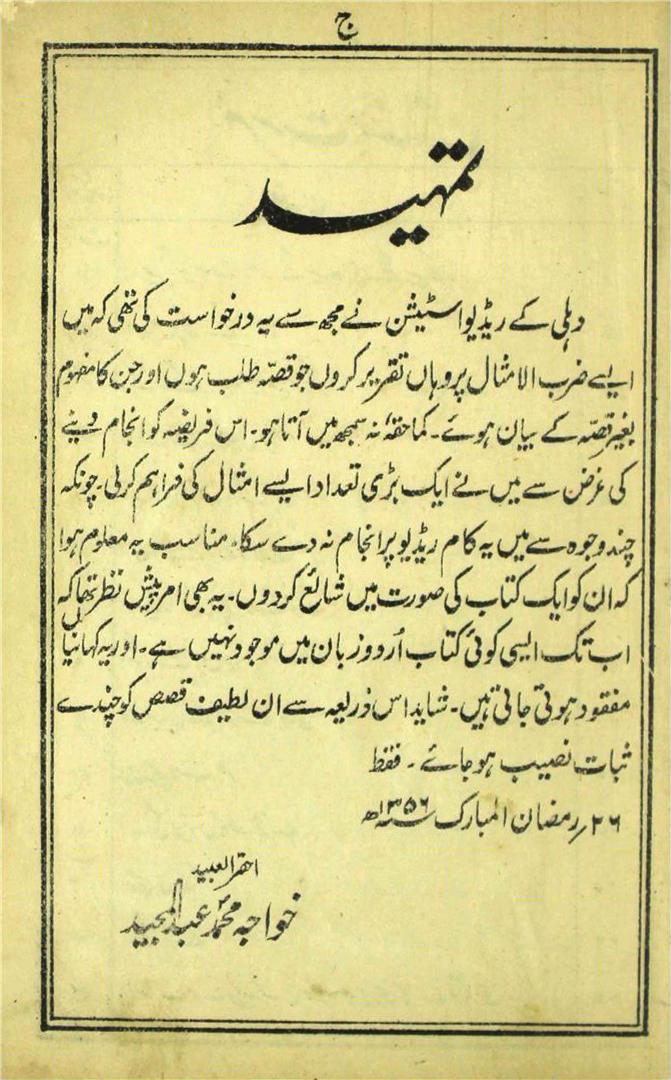 ج
تمہید
دہلی کے ریڈیو اسٹیشن نے مجھ سے یہ درخواست کی تھی کہ میں
ایسے ضرب الامثال پر وہاں تقریر کروں جو قصّہ طلب ہوں اور جن کا مفہوم
بغیر قصّہ کے بیان ہوئے۔ کماحقہٗ نہ سمجھ میں آتا ہو۔ اس فریضہ کو انجام دینے
کی غرض سے میں نے ایک بڑی تعداد ایسے امثال کی فراہم کر لی۔ چونکہ
چند وجوہ سے میں یہ کام ریڈیو پر انجام نہ دے سکا، مناسب یہ معلوم ہوا
کہ ان کو ایک کتاب کی صورت میں شائع کردوں۔ یہ بھی امر پیش نظر تھا کہ
اب تک ایسی کوئی کتاب اُردو زبان میں موجود نہیں ہے۔ اور یہ کہانیاں
مفقود ہوتی جاتی ہیں۔ شاید اس ذریعہ سے ان لطیف قصص کو چندے
ثبات نصیب ہوجائے۔ فقط
۲۶؍ رمضان المبارک ۱۳۵۶ھ
احقر العبید
خواجہ محمد عبدالمجید